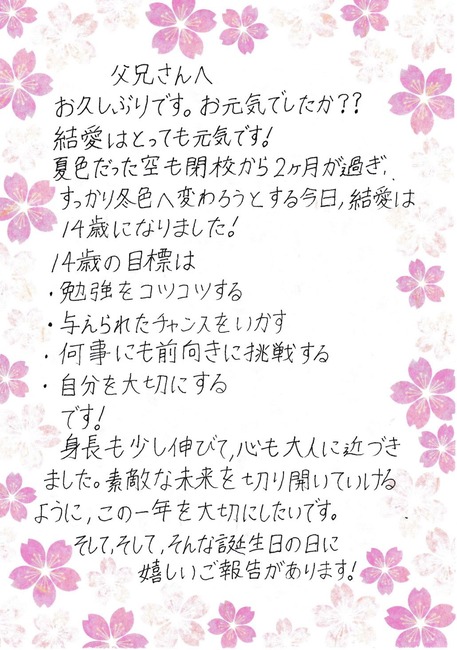 父兄さんへ
お久しぶりです。お元気でしたか??
結愛はとっても元気です!
夏色だった空も閉校から2ヶ月が過ぎ、
すっかり冬色へ変わろうとする今日,結愛は
14歳になりました!
14歳の目標は
・勉強をコツコツする
・与えられたチャンスをいかす
・何事にも前向きに挑戦する
・自分を大切にする
です!
身長も少し伸びて,心も大人に近づき
ました。素敵な未来を切り開いていける
ように,この一年を大切にしたいです。
そして,そして,そんな誕生日の日に
嬉しいご報告があります!